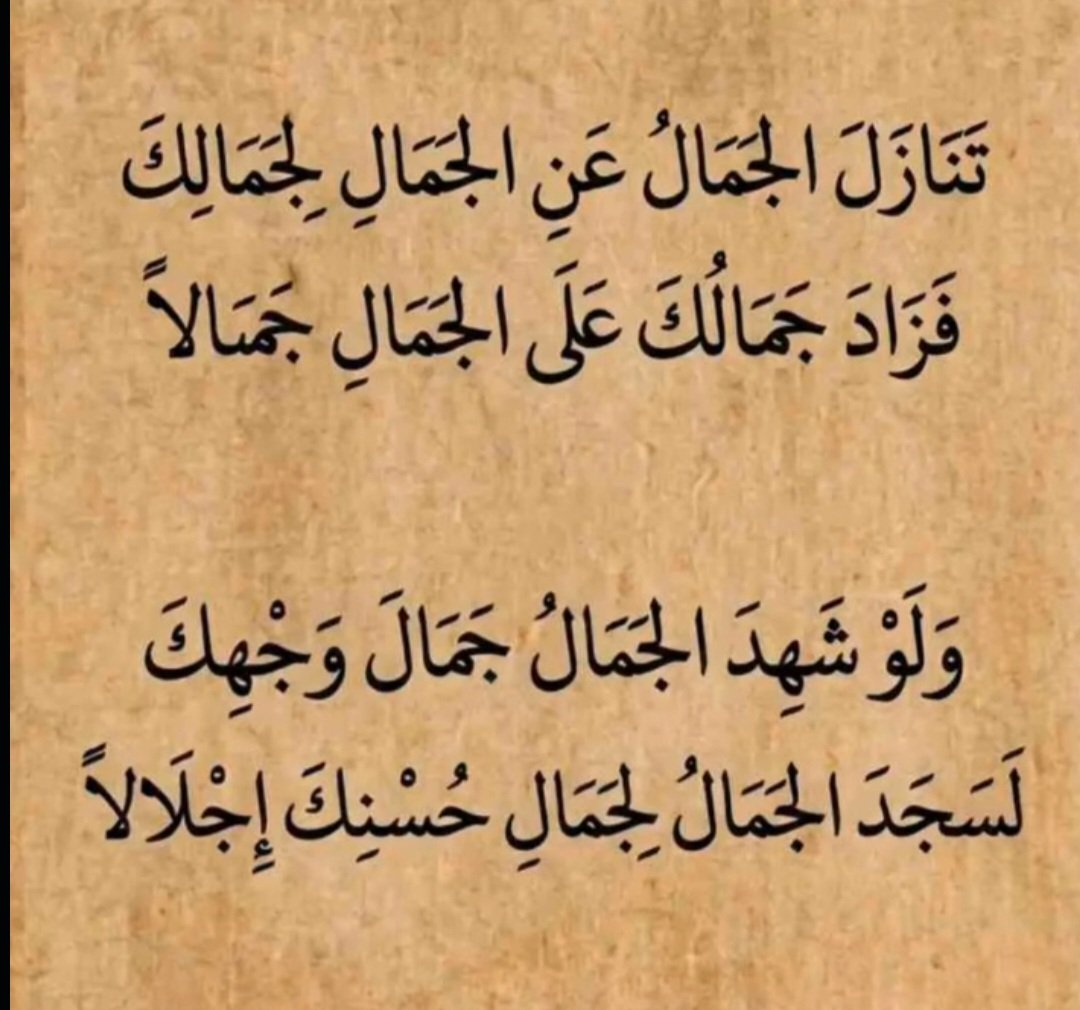 تَنَازَلَ الجَمَالُ عَنِ الجَمَالِ لِجَمَالِكَ
فَزَادَ جَمَالُكَ عَلَى الجَمَالِ جَمَالاً
وَلَوْ شَهِدَ الجَمَالُ جَمَالَ وَجْهِكَ
لَسَجَدَ الجَمَالُ لِجَمَالِ حُسْنِكَ إِجْلَالاً